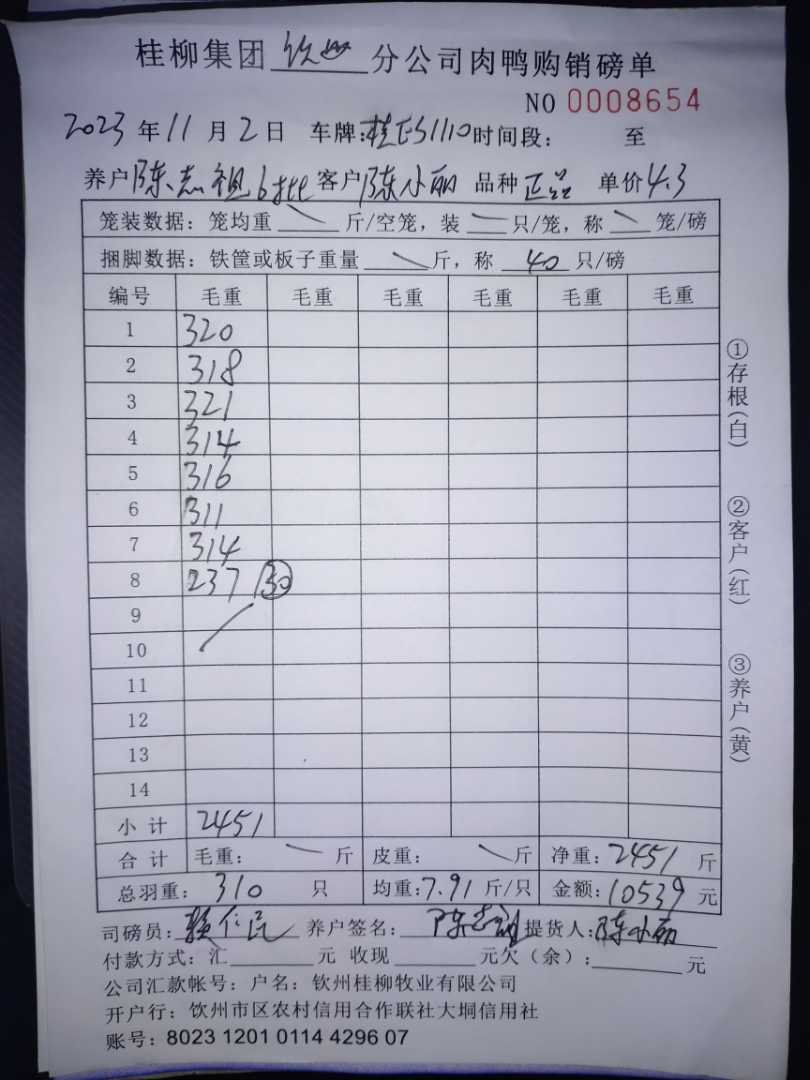 桂柳集团 钦州 分公司肉鸭购销磅单
NO 0008654
2023 年 11 月 2 日 车牌:桂 51110 时间段: 至
养户 陈志祖 6批 客户 陈小丽 品种 正品 单价 4.3
笼装数据: 笼均重 \ 斤/空笼, 装 — 只/笼, 称 \ 笼/磅
捆脚数据: 铁筐或板子重量 \ 斤, 称 40 只/磅
编号 毛重 毛重 毛重 毛重 毛重 毛重
1 320
2 318
3 321
4 314
5 316
6 311
7 314
8 237 /30
9
10
11
12
13
14
小 计 2451
合 计 毛重: \ 斤 皮重: \ 斤 净重: 2451 斤
总羽重: 310 只 均重: 7.91 斤/只 金额: 10539 元
司磅员: 养户签名: 陈志祖 提货人: 陈小丽
付款方式: 汇 元 收现 元欠（余）: 元
公司汇款帐号: 户名: 钦州桂柳牧业有限公司
开户行: 钦州市区农村信用合作联社大垌信用社
账号: 8023 1201 0114 4296 07
①存根(白)
②客户(红)
③养户(黄)